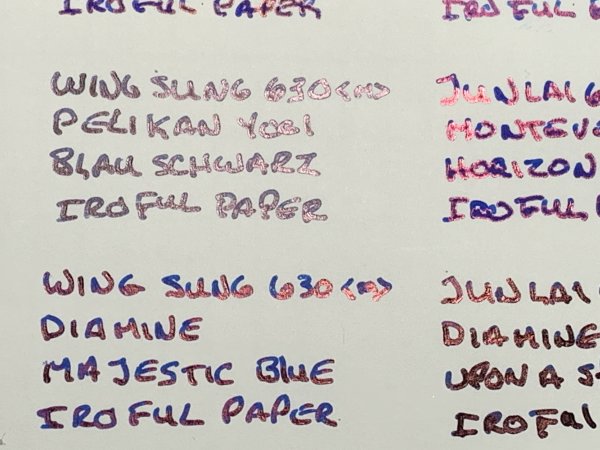 IROFUL PAPER
IROFUL
WING SUNG 630 <M>
PELIKAN YOGI
BLAU SCHWARZ
IROFUL PAPER
JUNLAI 6
MONTEV
HORIZON
IROFUL
WING SUNG 630 <M>
DIAMINE
MAJESTIC BLUE
IROFUL PAPER
JUNLAI
DIAMINE
UPON A
IROFUL